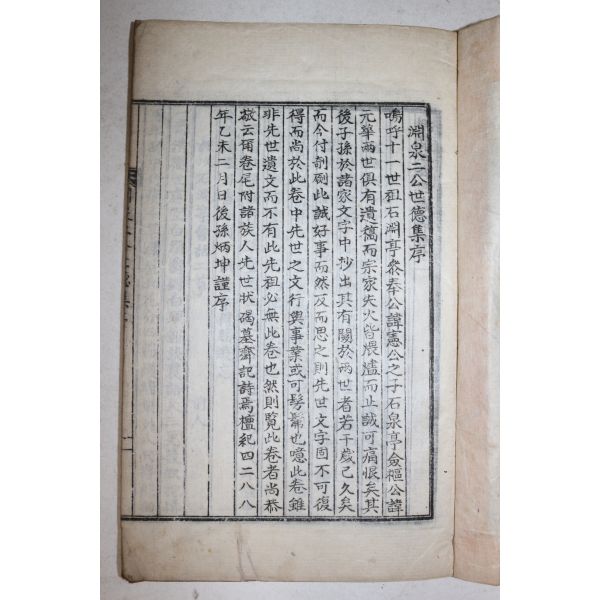 淵泉二公世德集序
嗚呼十一世祖石淵亭叅奉公諱憲公之子石泉亭僉樞公諱
元華兩世俱有遺稿而宗家失火皆煨燼而止誠可痛恨矣其
後子孫於諸家文字中抄出其有關於兩世者若干歲已久矣
而今付剞劂此誠好事而然反而思之則先世文字固不可復
得而尚於此卷中先世之文行與事業或可髣髴也噫此卷雖
非先世遺文而不有此先祖必無此卷也然則覽此卷者尚恭
敬云爾卷尾附諸族人先世狀碣墓齋記詩焉檀紀四二八八
年乙未二月日後孫炳坤謹序